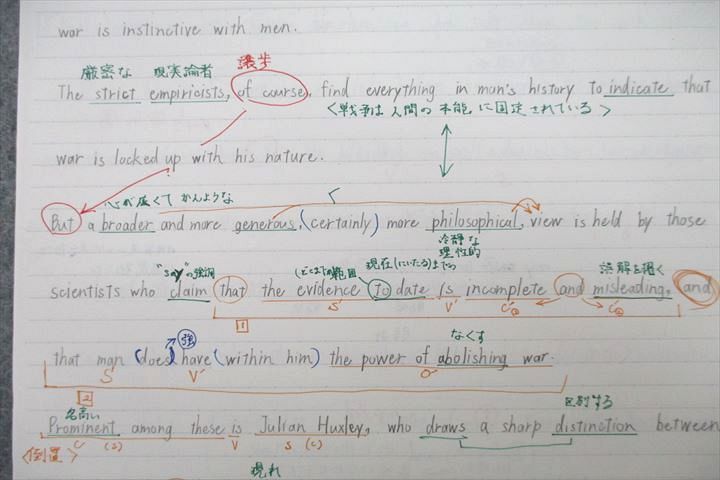 war is instinctive with men.
厳密な 現実論者 譲歩
The strict empiricists, of course, find everything in man's history to indicate that
<戦争は人間の本能に固定されている>
war is locked up with his nature.
心が広くて かんような
But a broader and more generous, (certainly) more philosophical, view is held by those
冷静な
理性的
"say"の強調 (どこまでの範囲 現在(にいたる)までの 誤解を招く
scientists who claim that the evidence to date is incomplete and misleading, and
S' V' C'① C'②
1
強 なくす
that man (does) have (within him) the power of abolishing war.
S' V' O'
2
名高い 区別する
Prominent among these is Julian Huxley, who draws a sharp distinction between
C (S) V S (C)
<倒置>
現れ